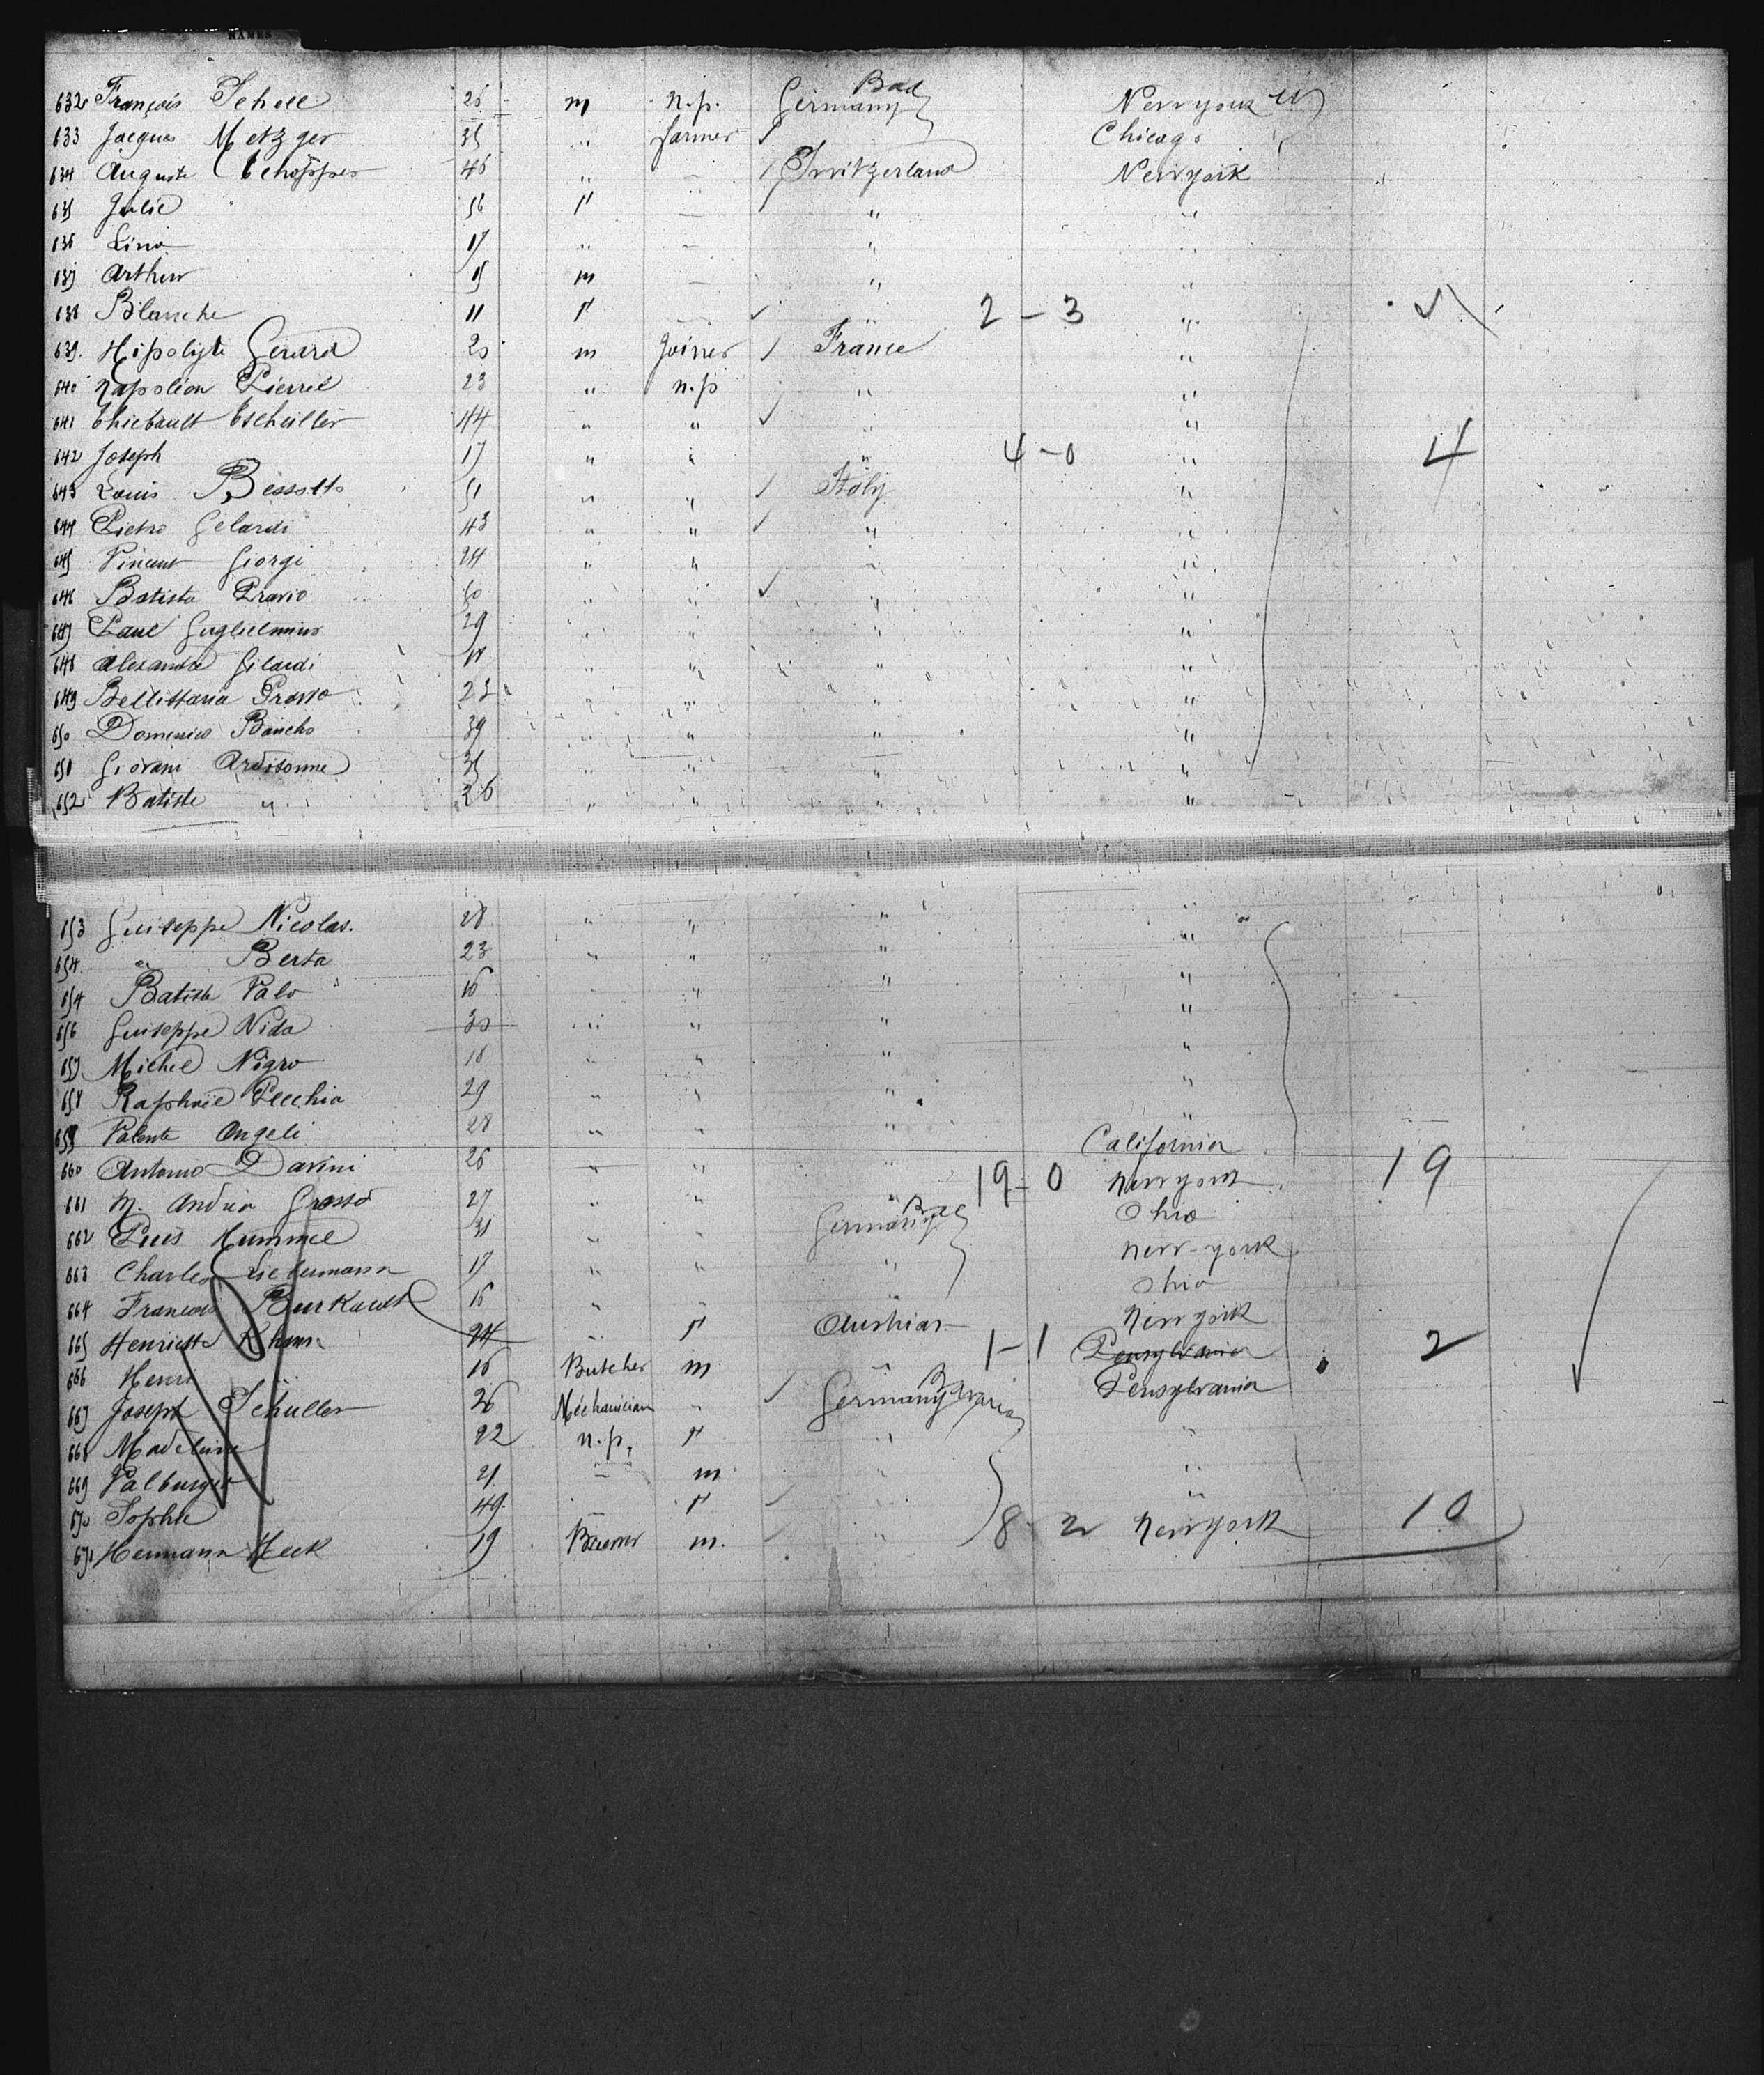 NAMES
632 François Schell 26 m n.p. Germany Bad New york
633 Jacques Metzger 35 " farmer Chicago
634 Auguste Tschöpper 46 " — Switzerland New york
635 Julie 56 f — " "
636 Lina 17 " — " "
637 Arthur 15 m — " "
638 Blanche 11 f — " 2-3 " 5
639 Hipolyte Gerard 20 m Joiner France "
640 Napoléon Pierrel 23 " n.p " "
641 Thiebault Tschiller 44 " " " "
642 Joseph 17 " " " 4-0 " 4
643 Louis Bessotto 51 " " Italy "
644 Pietro Gelardi 43 " " " "
645 Vincent Giorgi 24 " " " "
646 Batista Pravio " " " "
647 Paul Guglielmino 29 " " " "
648 Alexandre Gilardi " " " "
649 Prosso 23 " " " "
650 Domenico Biancho 39 " " " "
651 Giovani Ardisonne 35 " " " "
652 Batiste " 26 " " " "
653 Guiseppe Nicolas. 28 " " " "
654 " Berta 23 " " " "
654 Batiste Valo 16 " " " "
656 Guiseppe Nida 30 " " " "
657 Michel Nigro 18 " " " "
658 Raphaël Pecchia 29 " " " "
659 Valente Angeli 28 " " " California
660 Antonio Davini 26 " " " 19-0 New york 19
661 M. Andrea Grosso 27 " " " Ohio
662 Hummel 31 " " Germany New-york
663 Charles Liebermann 17 " " " Ohio
664 François Burkardt 16 " " " New york
665 Henriette 24 " f Austria 1-1 Pensylvania 2
666 Henri 16 Butcher m " Pensylvania
667 Joseph Schuller 26 Mechanician " Germany Bavaria
668 Madeleine 22 n.p. f " "
669 21 — m " "
670 Sophie 49 — f " "
671 Hermann Heck 19 Brewer m. " 8-2 New york 10